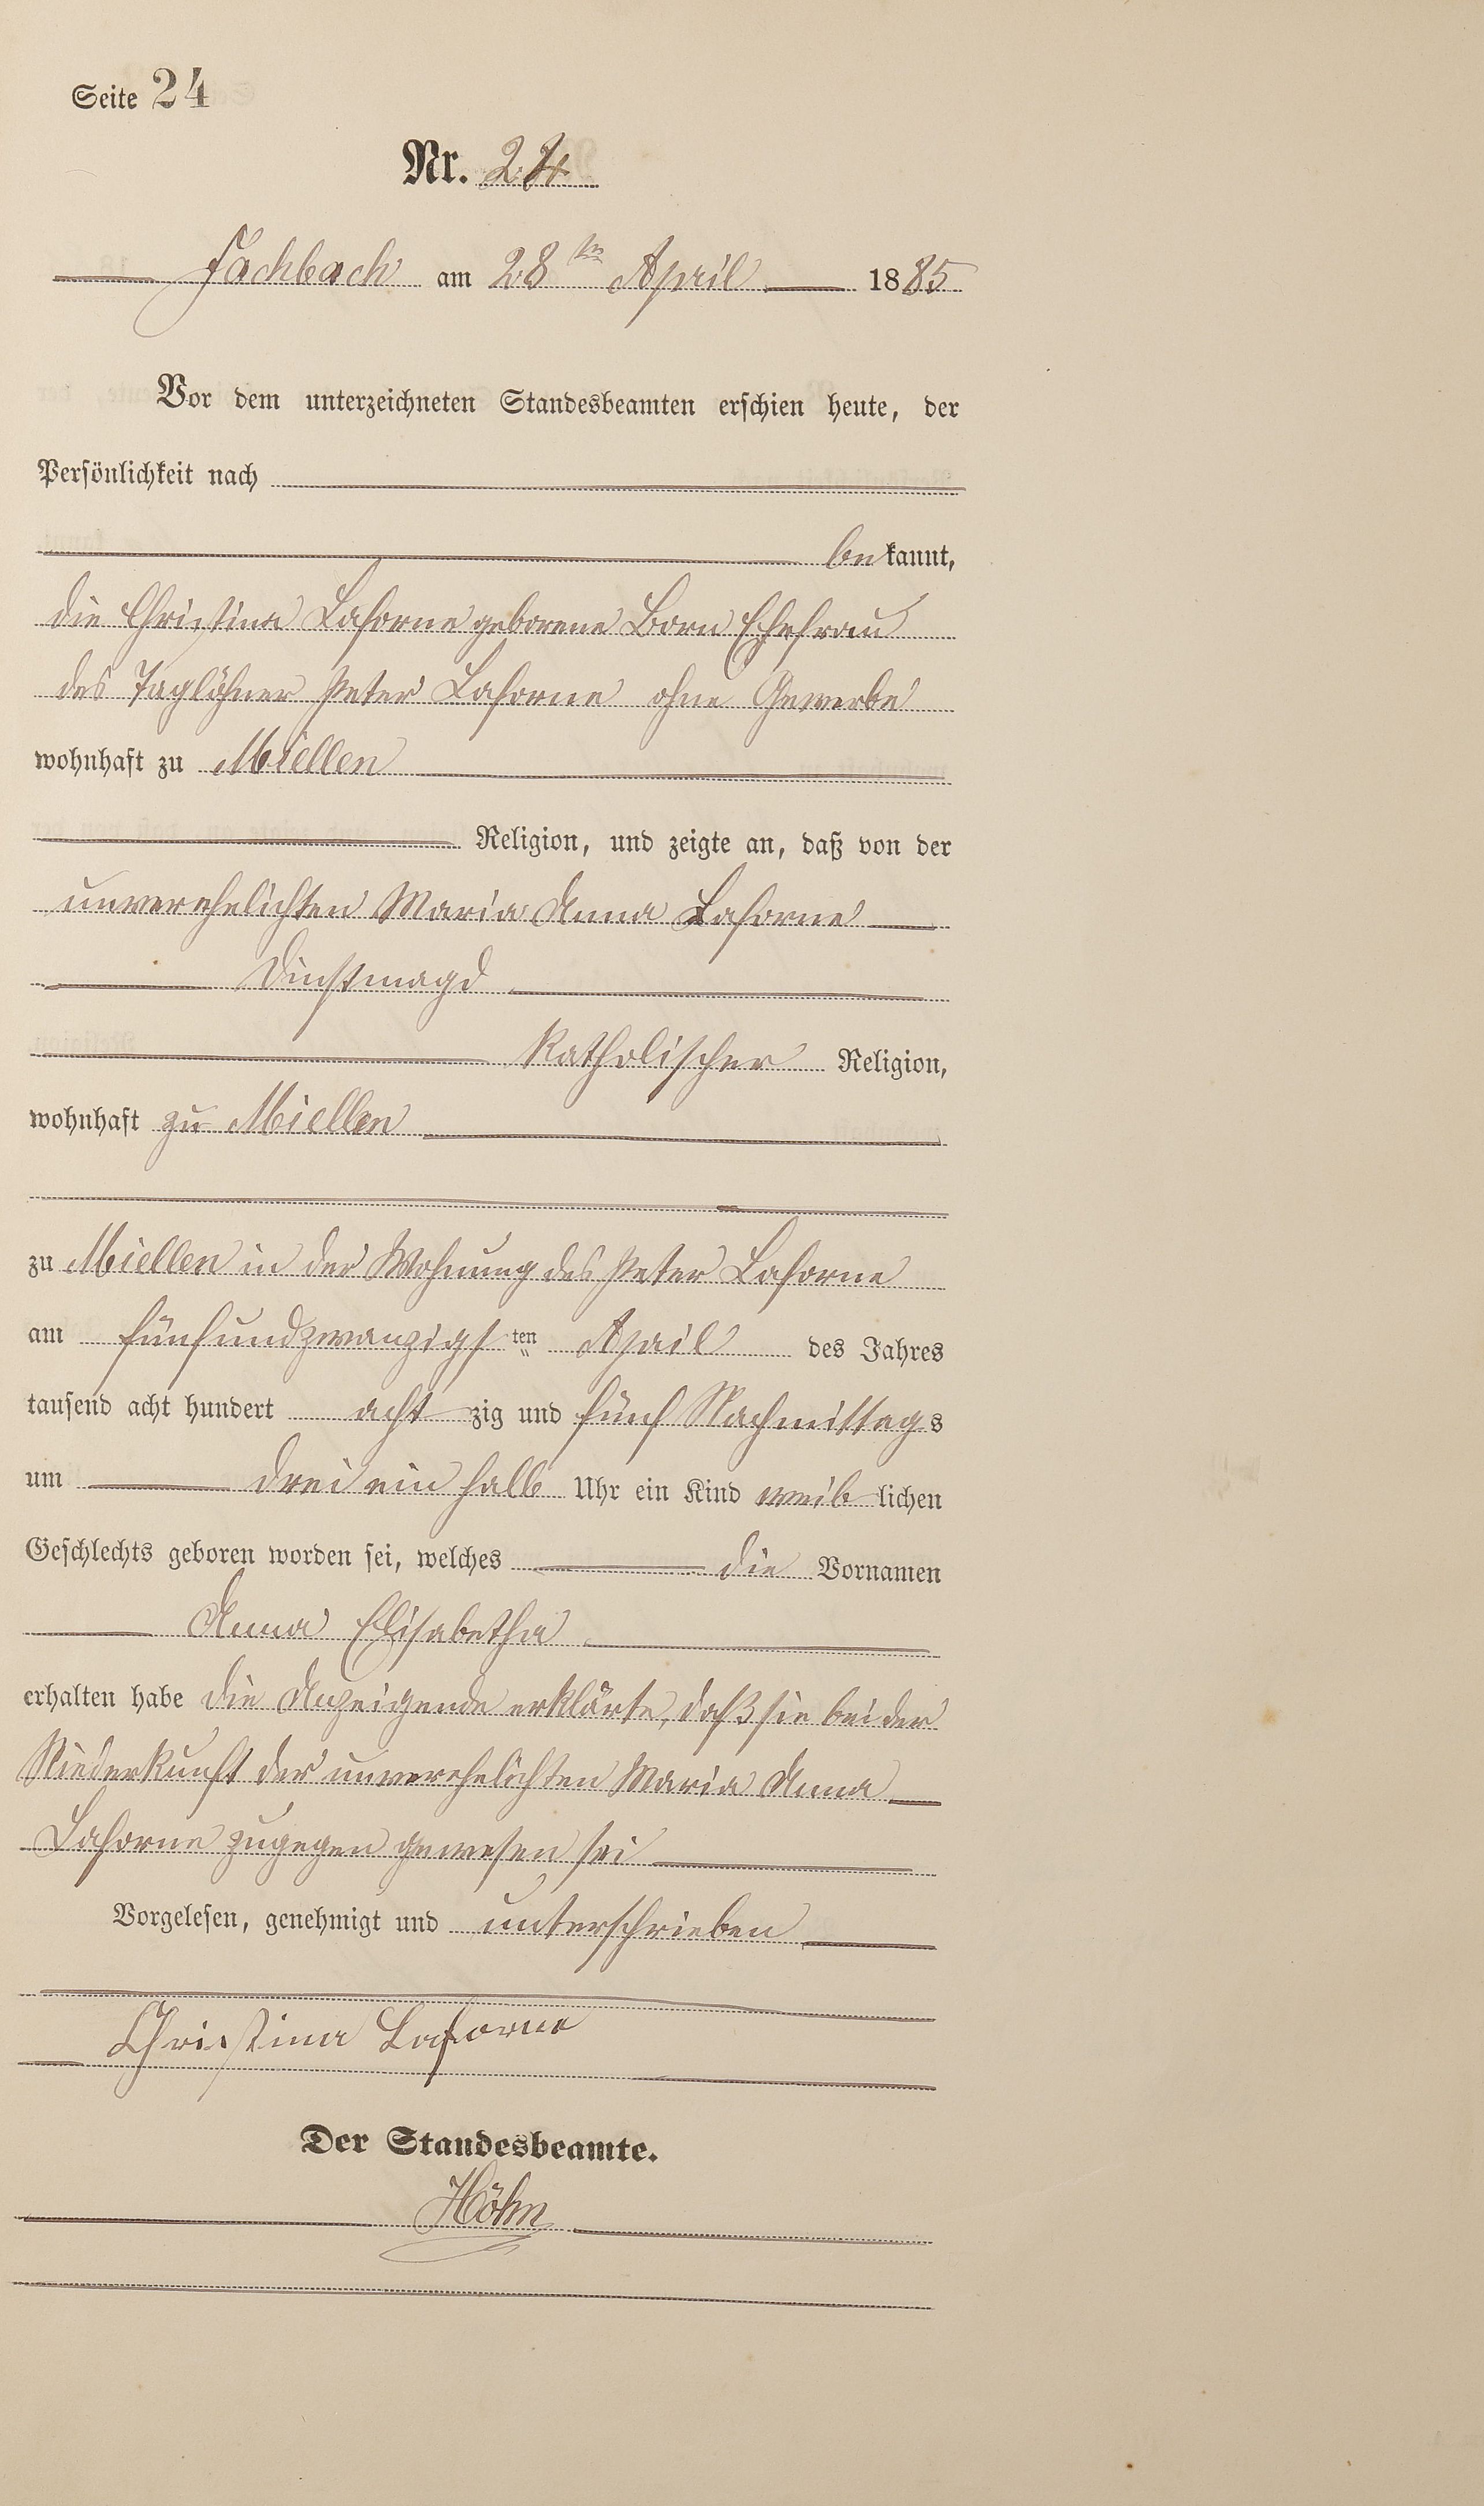 Seite 24
Nr. 24
Fachbach am 28ten April 1885
Vor dem unterzeichneten Standesbeamten erschien heute, der
Persönlichkeit nach
bekannt,
die Christina Laforne geborene Born Ehefrau
des Taglöhner Peter Laforne ohne Gewerbe
wohnhaft zu Miellen
Religion, und zeigte an, daß von der
unverehelichten Maria Anna Laforne
Dinstmagd
Katholischer Religion,
wohnhaft zu Miellen
zu Miellen in der Wohnung des Peter Laforne
am fünfundzwanzigsten April des Jahres
tausend acht hundert achtzig und fünf Nachmittags
um drei ein halb Uhr ein Kind weiblichen
Geschlechts geboren worden sei, welches die Vornamen
Anna Elisabetha
erhalten habe die Anzeigende erklärte, daß sie bei der
Niederkunft der unverehelichten Maria Anna
Laforne zugegen gewesen sei
Vorgelesen, genehmigt und unterschrieben
Christina Laforne
Der Standesbeamte.
Höhn